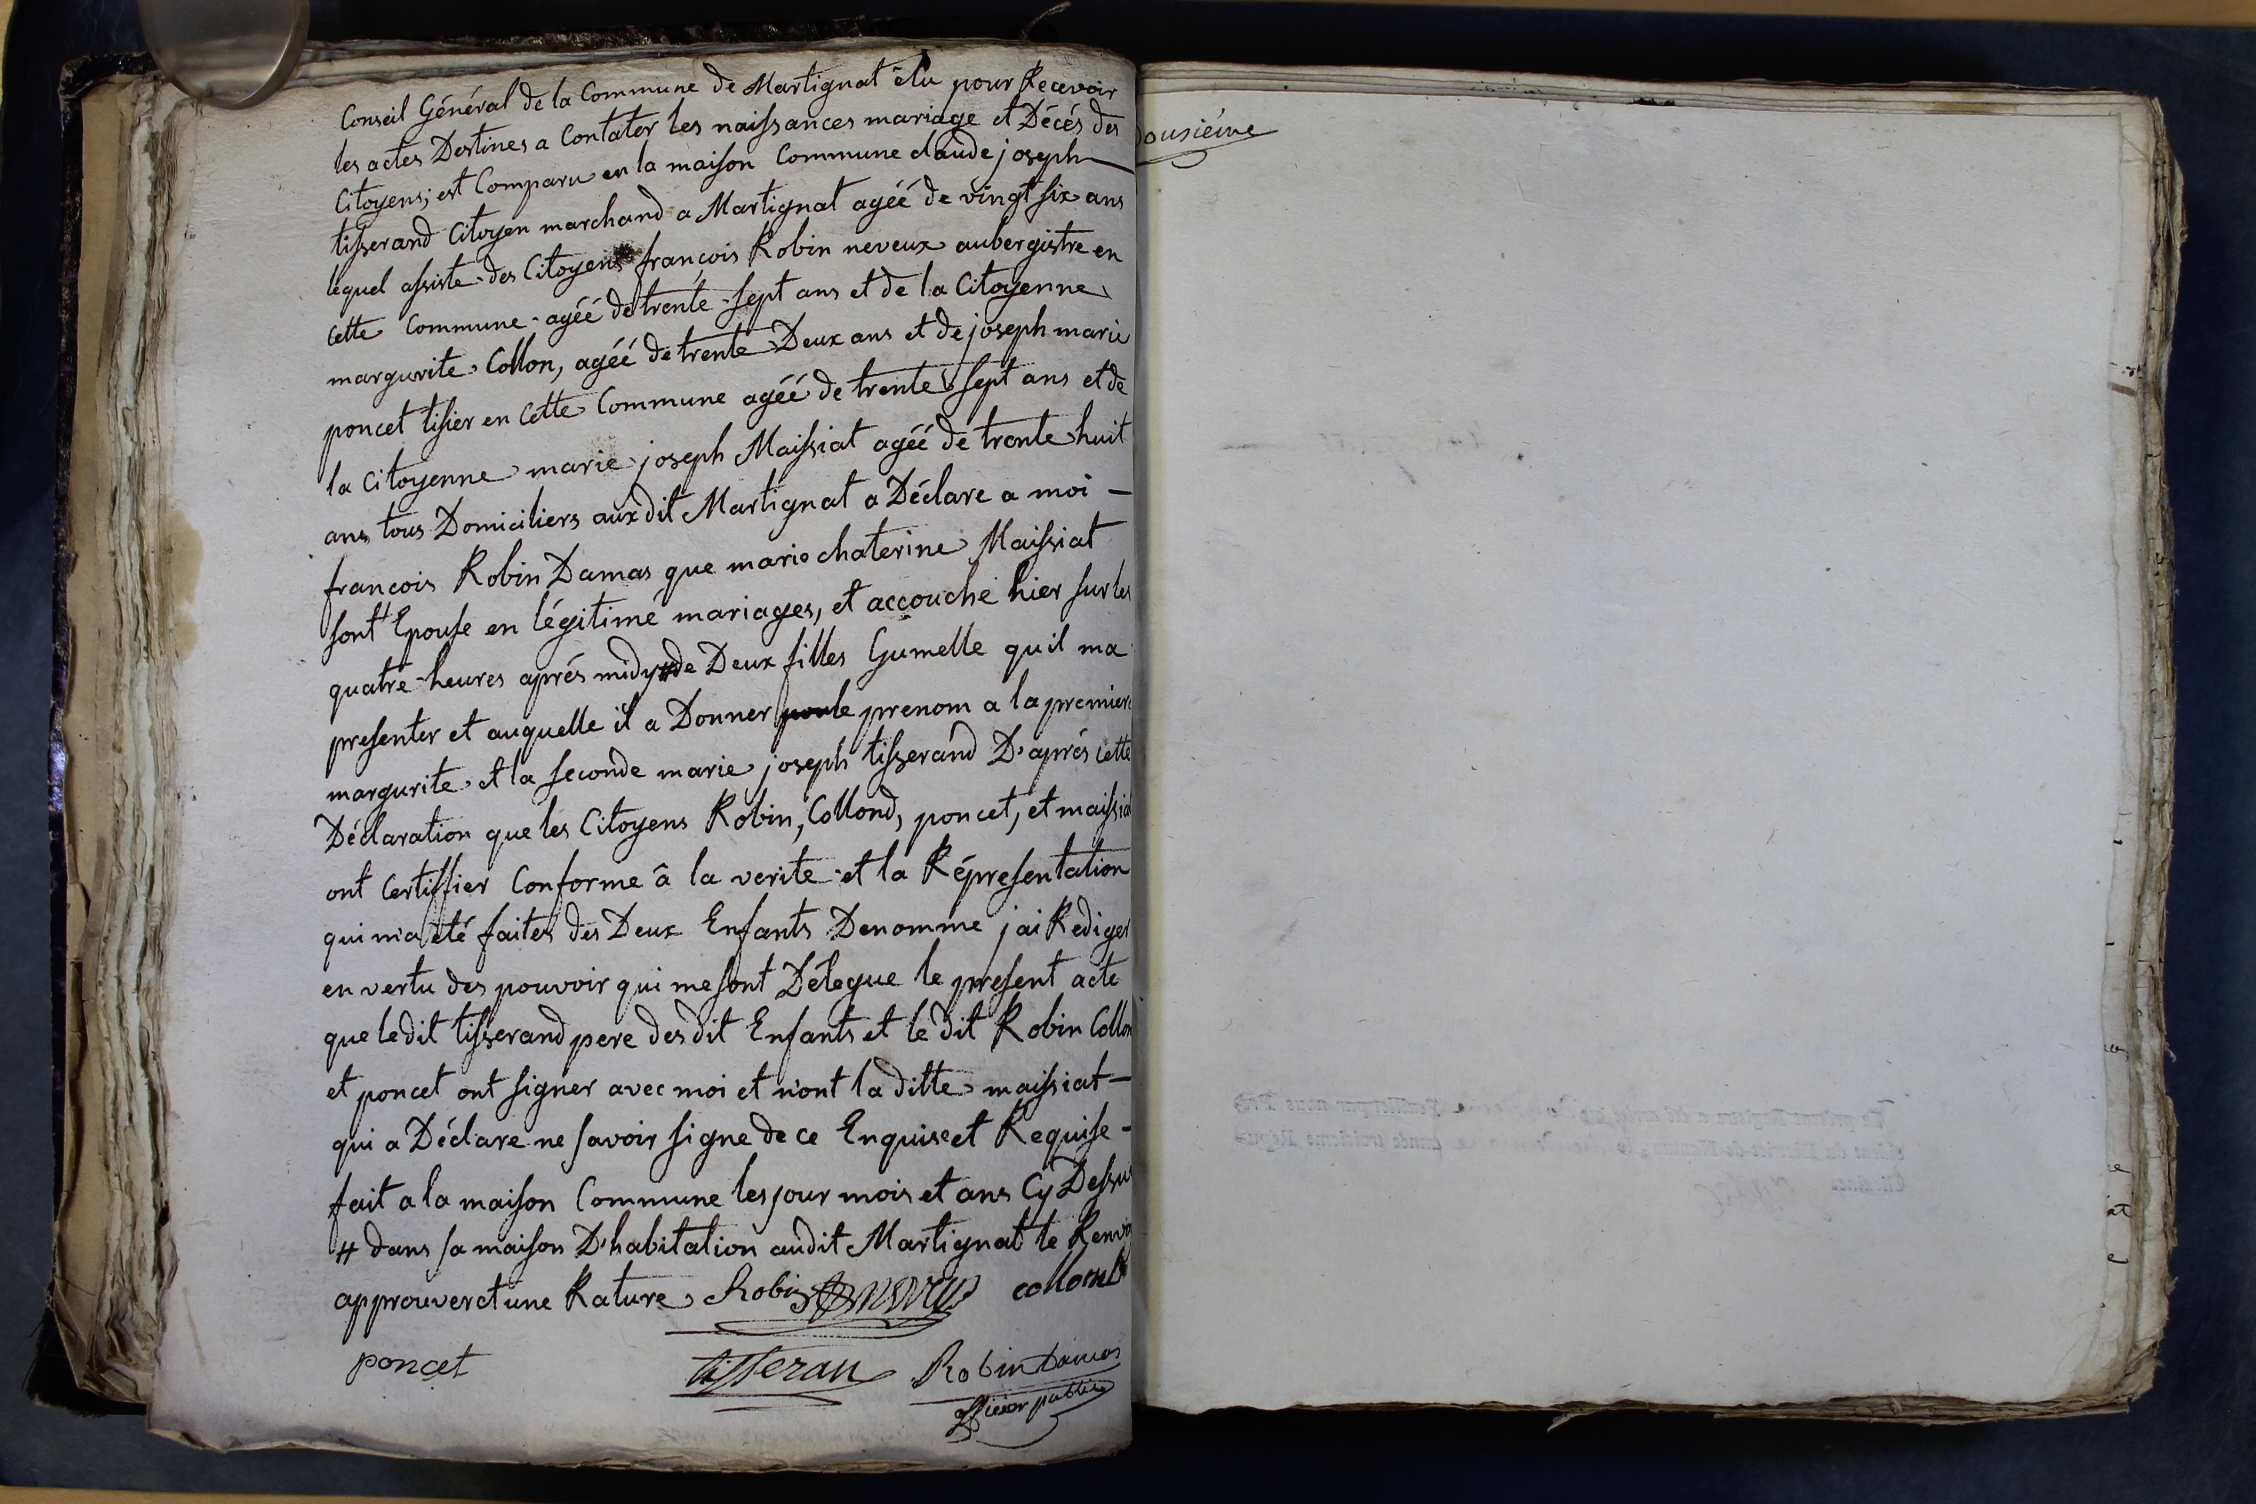 Conseil Général de la Commune de Martignat élu pour Recevoir
les actes Destines a Contater les naissances mariage et Décés des
Citoyens; est Comparu en la maison Commune claude joseph
tisserand Citoyen marchand a Martignat agéé de vingt six ans
lequel assiste des Citoyens françois Robin neveux aubergistre en
cette Commune agéé de trente sept ans et de la Citoyenne
margurite Collon, agéé de trente Deux ans et de joseph marie
poncet tisier en cette Commune agéé de trente sept ans et de
la Citoyenne marie joseph Maissiat agéé de trente huit
ans tous Domiciliers aux dit Martignat a Déclare a moi —
francois Robin Damas que marie chaterine Maissiat
sont Epouse en légitimé mariages, et accouché hier sur les
quatre heures aprés midy # de Deux filles Gumelle quil ma
presenter et auquelle il a Donner pour le prenom a la premiere
margurite et la seconde marie joseph tisserand D'aprés cette
Déclaration que les Citoyens Robin, Collond, poncet, et maissia
ont Certiffier Conforme â la verite et la Réprésentation
qui m'a été faites des Deux Enfants Denomme j'ai Rediger
en vertu des pouvoir qui me sont Délegue le present acte
que le dit tisserand pere des dit Enfants et le dit Robin Collon
et poncet ont signer avec moi et n'ont la ditte maissiat —
qui a Déclare ne savoir signe de ce Enquise et Requise —
fait a la maison Commune les jour mois et ans Cy Dessus
# dans sa maison D'habitation au dit Martignat le Renvoi
approuver et une Rature Robin neveux collomb
poncet tisseran Robin Damas
officier public
Dousiéme